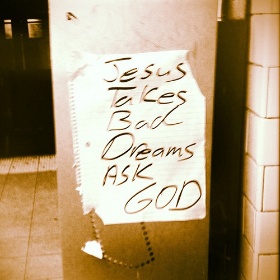 Jesus
Takes
Bad
Dreams
ASK
GOD